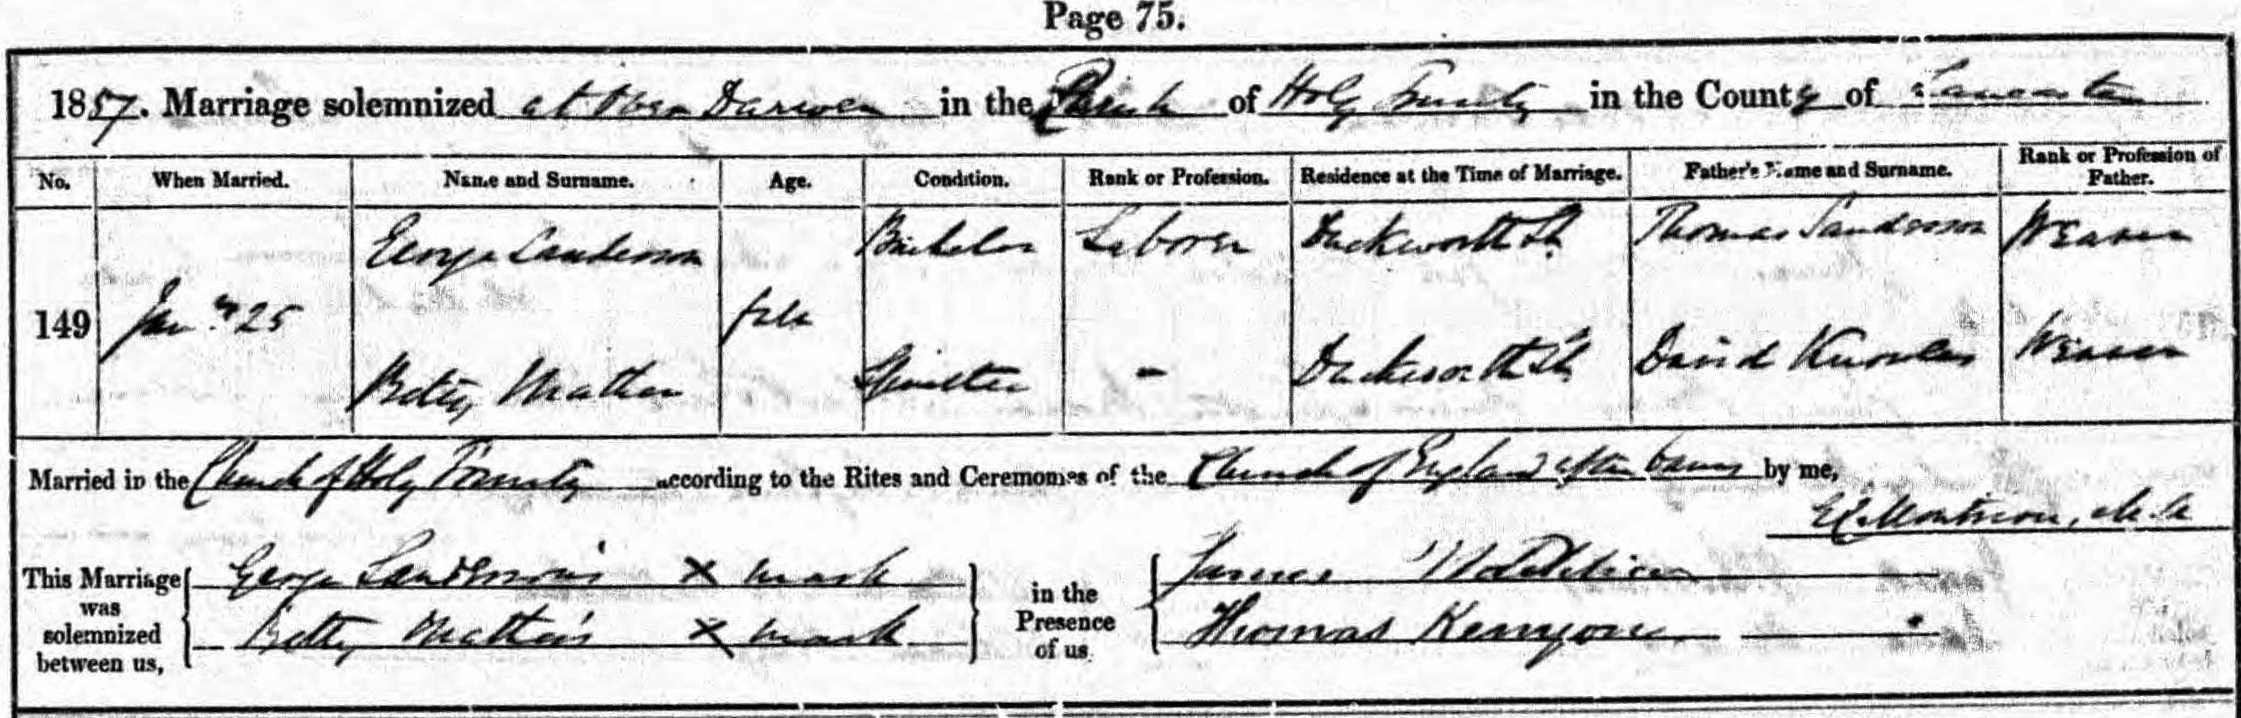 Page 75.
1857. Marriage solemnized at Over Darwen in the Parish of Holy Trinity in the County of Lancaster
No. When Married. Name and Surname. Age. Condition. Rank or Profession. Residence at the Time of Marriage. Father's Name and Surname. Rank or Profession of Father.
George Sanderson Bachelor Laborer Duckworth St. Thomas Sanderson Weaver
149 Jany. 25 full
Betty Mather Spinster - Duckworth St. David Knowles Weaver
Married in the Church of Holy Trinity according to the Rites and Ceremonies of the Church of England after banns by me,
M.A.
This Marriage was solemnized between us, George Sanderson's X mark in the Presence of us James
Betty Mather's X mark Thomas Kenyon